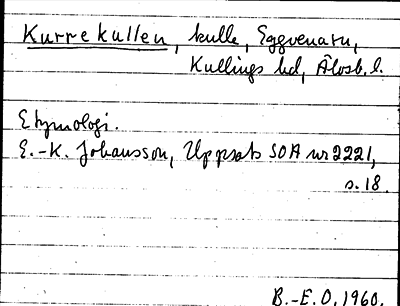 Kurrekullen, kulle, Eggvenatn,
Kullings hd, Älvsb. l.
Etymologi.
E.-K. Johansson, Uppsats SOA nr 2221,
s. 18.
B.-E. O, 1960.